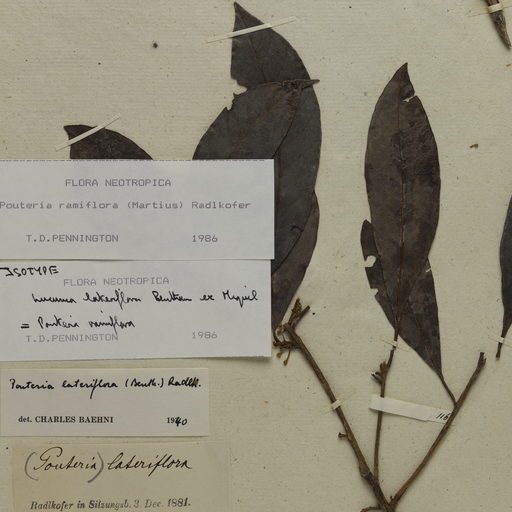 FLORA NEOTROPICA
Pouteria ramiflora (Martius) Radlkofer
T.D.PENNINGTON 1986
ISOTYPE
FLORA NEOTROPICA
Lucuma lateriflora Bentham ex Miquel
= Pouteria ramiflora
T.D.PENNINGTON 1986
Pouteria lateriflora (Benth.) Radlk.
det. CHARLES BAEHNI 1940
(Pouteria) lateriflora
Radlkofer in Sitzungsb. 3. Dec. 1881.